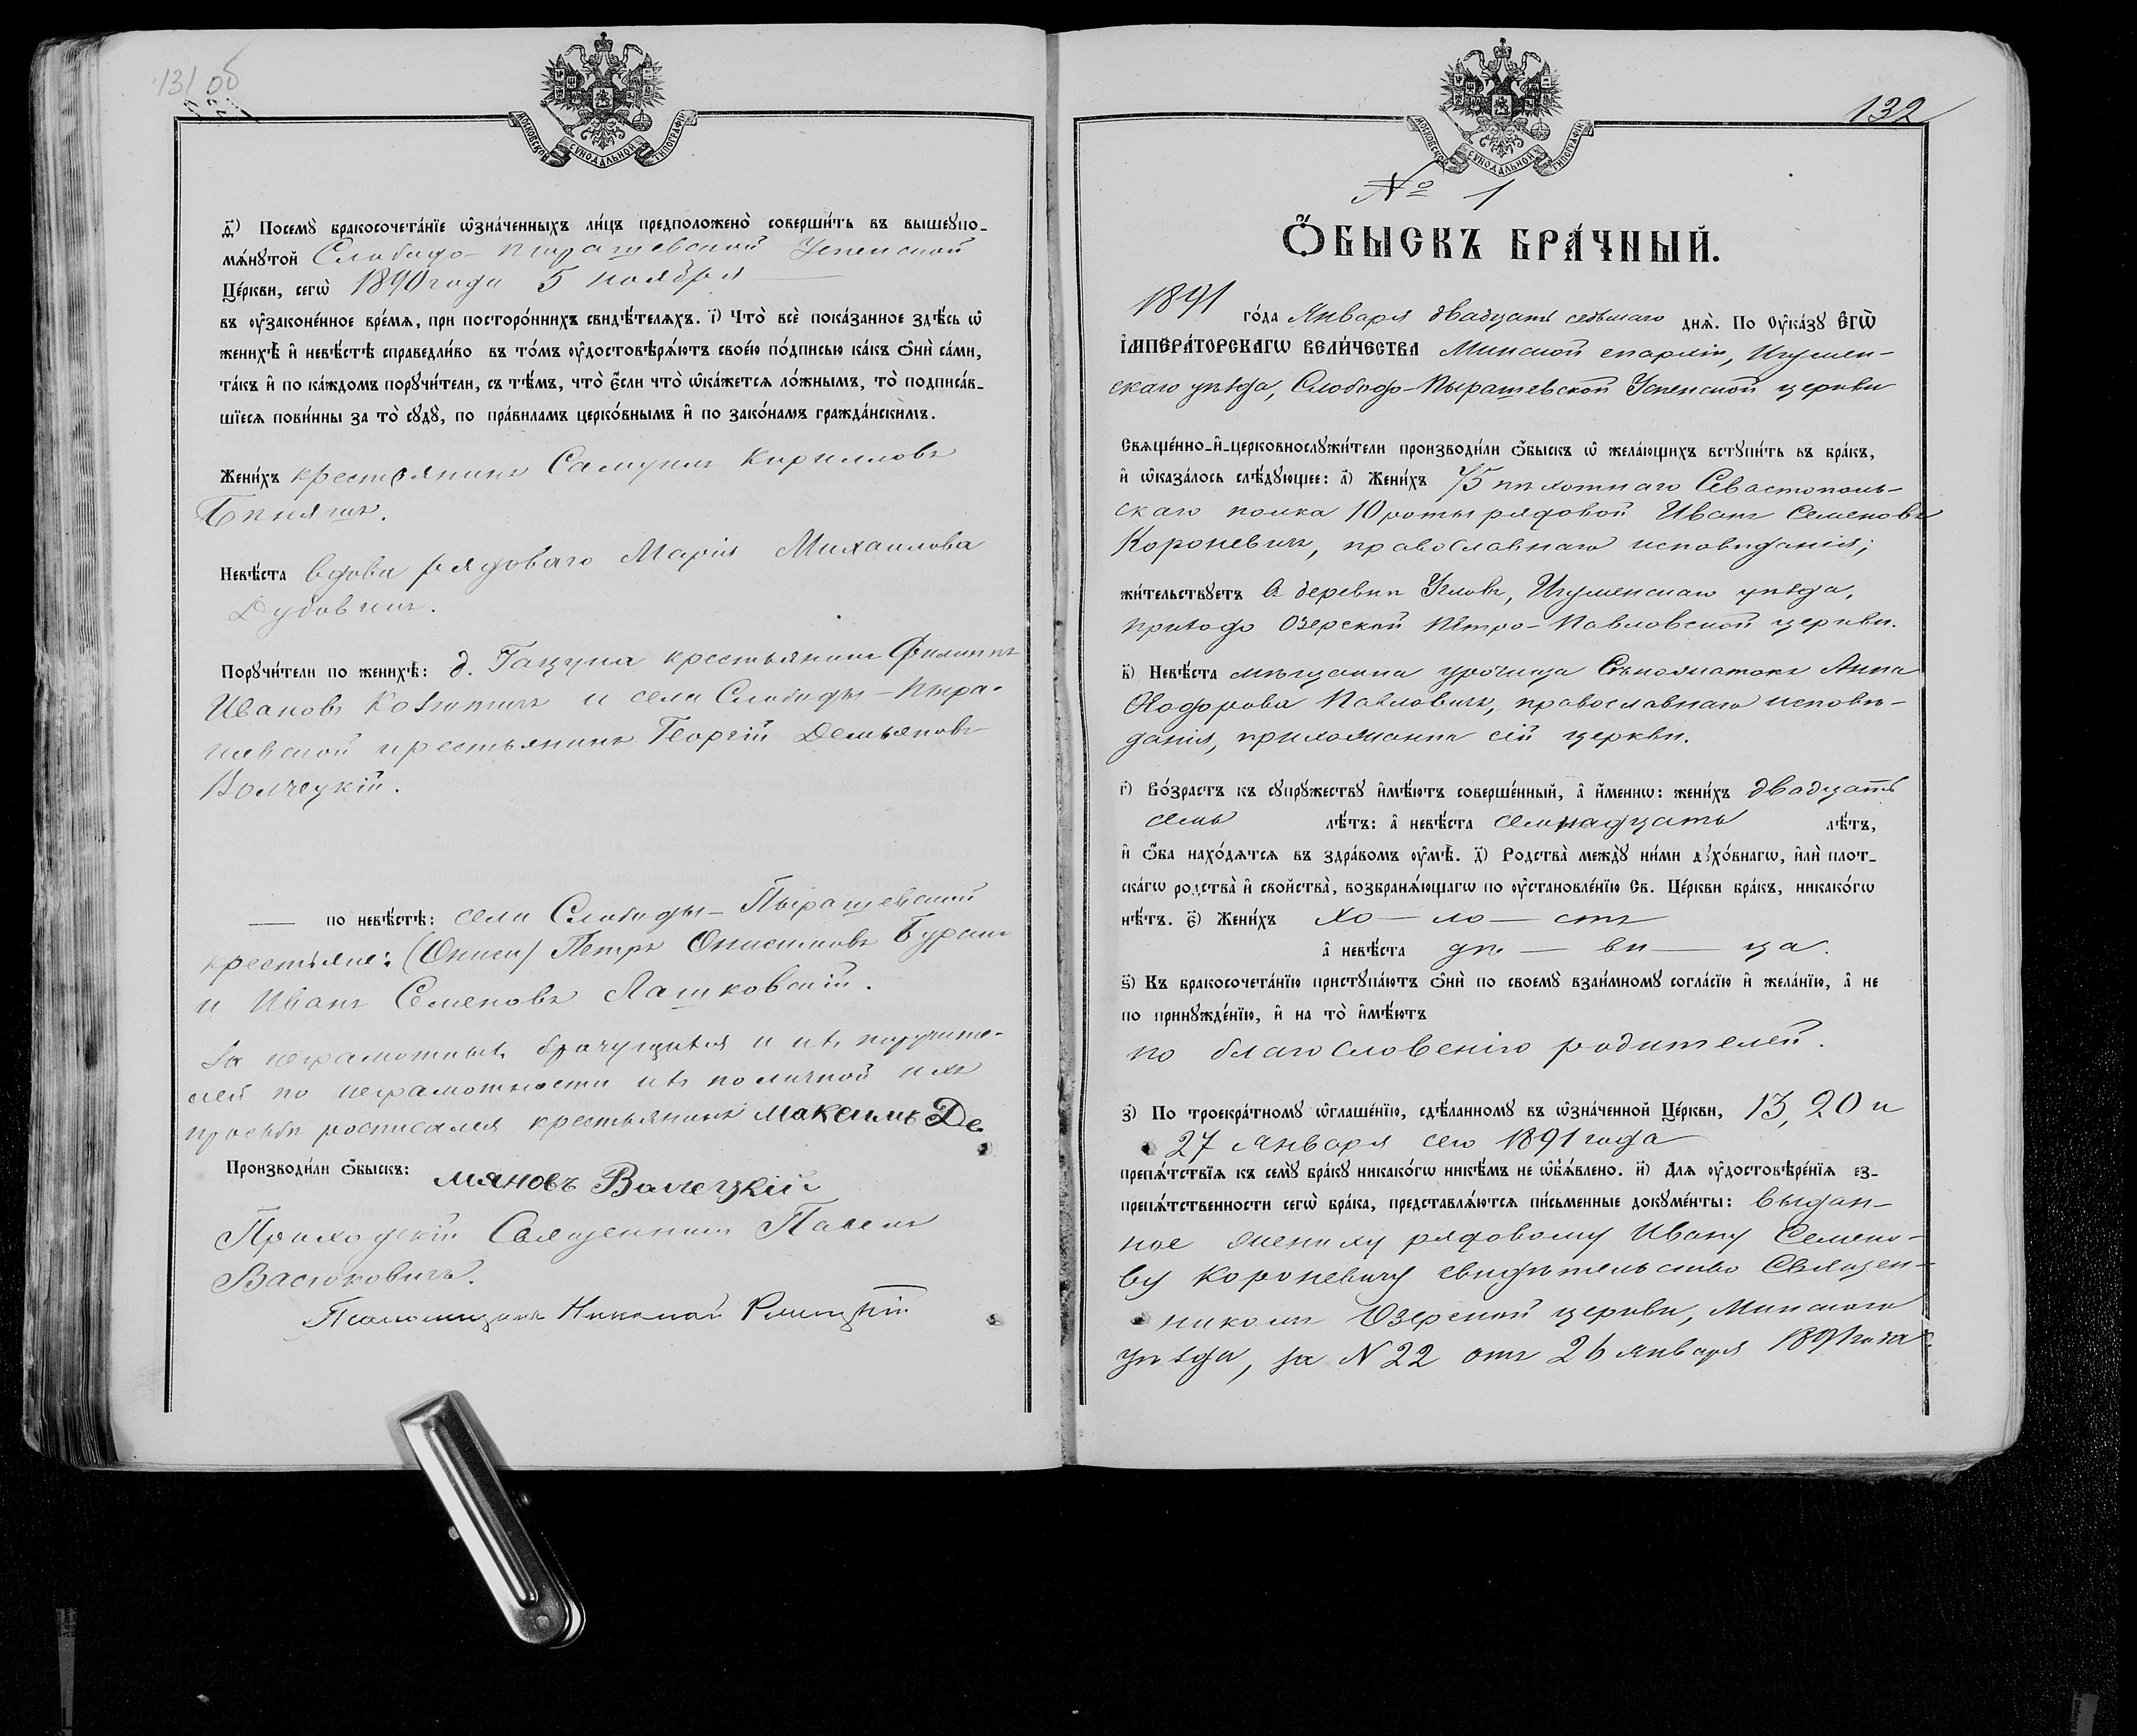 131 об
МОСКОВСКОЙ СѴНОДАЛЬНОЙ ТИПОГРАФІИ
д҃і) Посемꙋ̀ бракосочета́нїе ѡ҆зна́ченныхъ ли́цъ предположено̀ соверши́ть въ вышеꙋпо-
мѧ́нꙋтой Слободо-Пырашевской Успенской
Це́ркви, сегѡ̀ 1890 года 5 ноября
въ ᲂу҆законе́нное вре́мѧ, при посторо́ннихъ свидѣ́телѧхъ. і҃) Что̀ всѐ пока́занное здѣ́сь ѡ҆
женихѣ̀ и҆ невѣ́стѣ справедли́во въ то́мъ ᲂу҆достовѣрѧ́ютъ свое́ю по́дписью ка́къ ѻ҆нѝ са́ми,
та́къ и҆ по ка́ждомъ порꙋчи́тели, съ тѣ́мъ, что̀ є҆́сли что̀ ѡ҆ка́жетсѧ ло́жнымъ, то̀ подписа́в-
шїесѧ пови́нны за то̀ сꙋдꙋ̀, по пра́виламъ церко́внымъ и҆ по зако́намъ гражда́нскимъ.
Жени́хъ крестьянинъ Самуилъ Кирилловъ
Бѣняшъ.
Невѣ́ста вдова рядоваго Марія Михаилова
Дубовикъ.
Порꙋчи́тели по женихѣ̀: д. Гацука крестьянинъ Филиппъ
Ивановъ и села Слободы-Пыра-
шевской крестьянинъ Георгій Демьяновъ
Волчецкій.
— по невѣ́стѣ: села Слободы-Пырашевской
крестьяне: Петръ Онисимовъ
и Иванъ Семеновъ Лашковскій.
За неграмотныхъ брачущихся и ихъ поручите-
лей по неграмотности ихъ по личной ихъ
просьбѣ росписался крестьянинъ Максимъ Де
Производи́ли ѻ҆́быскъ: мяновъ Волчецкій
Приходскій Священникъ Павелъ
Васюковичъ.
Псаломщикъ Николай
132
МОСКОВСКОЙ СѴНОДАЛЬНОЙ ТИПОГРАФІИ
№ 1
Ѻ҆́БЫСКЪ БРА́ЧНЫЙ.
1891 го́да Января двадцать седьмаго днѧ̀. По Оу҆ка́зꙋ Є҆ГѠ̀
І҆МПЕРА́ТОРСКАГѠ ВЕЛИ́ЧЕСТВА Минской епархіи, Игумен-
скаго уѣзда, Слободо-Пырашевской Успенской церкви
Свѧще́нно-и҆-церковнослꙋжи́тели производи́ли ѻ҆́быскъ ѡ҆ жела́ющихъ встꙋпи́ть въ бра́къ,
и҆ ѡ҆каза́лось слѣ́дꙋющее: а҃) Жени́хъ 75 пѣхотнаго Севастополь-
скаго полка 10 роты рядовой Иванъ Семеновъ
Короневичъ, православнаго исповѣданія;
жи́тельствꙋетъ въ деревнѣ Угловъ, Игуменскаго уѣзда,
прихода Озерской Петро-Павловской церкви.
в҃) Невѣ́ста мѣщанка урочища Сѣножатокъ Анна
Ѳеодорова Павловичъ, православнаго исповѣ-
данія, прихожанка сей церкви.
г҃) Во́зрастъ къ сꙋпрꙋ́жествꙋ и҆мѣ́ютъ соверше́нный, а҆ и҆́менно: жени́хъ двадцать
семь лѣ́тъ: а҆ невѣ́ста семнадцать лѣ́тъ,
и҆ ѻ҆́ба нахо́дѧтсѧ въ здра́вомъ ᲂу҆мѣ̀. д҃) Родства̀ междꙋ̀ ни́ми дꙋхо́внагѡ, и҆лѝ плот-
ска́гѡ родства̀ и҆ сво́йства̀, возбранѧ́ющагѡ по ᲂу҆становле́нїю Св. Це́ркви бра́къ, никако́гѡ
нѣ́тъ. є҃) Жени́хъ хо — ло — стъ
а҆ невѣ́ста дѣ — ви — ца.
ѕ҃) Къ бракосочета́нїю пристꙋпа́ютъ ѻ҆нѝ по своемꙋ̀ взаи́мномꙋ согла́сїю и҆ жела́нїю, а҆ не
по принꙋжде́нїю, и҆ на то̀ и҆мѣ́ютъ
по благословенію родителей.
з҃) По троекра́тномꙋ ѡ҆глаше́нїю, сдѣ́ланномꙋ въ ѡ҆зна́ченной Це́ркви, 13, 20 и
27 января сего 1891 года
препѧ́тствїѧ къ семꙋ̀ бра́кꙋ никако́гѡ никѣ́мъ не ѡ҆б̾ѧ́влено. и҃) Длѧ ᲂу҆достовѣре́нїѧ ез-
препѧ́тственности сегѡ̀ бра́ка, представлѧ́ютсѧ пи́сьменные докꙋме́нты: выдан-
ное жениху рядовому Ивану Семено-
ву Короневичу свидѣтельство Священ-
никомъ Озерской церкви, Минскаго
уѣзда, за N 22 отъ 26 января 1891 года